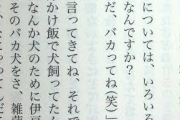 については、いろいろ
なんですか？
だ、バカってね（笑）」
言ってきてね、それで
かけ飯で犬飼ってたん
なんか犬のために伊豆
そのバカ犬をさ、雑